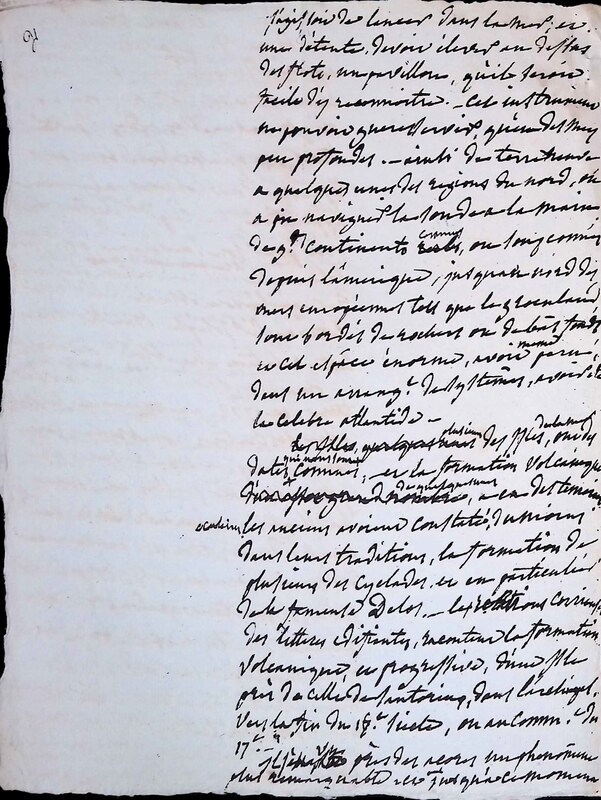 de lancer dans la mer, et
une détente, devoir élever au dessus
des flots, un pavillon, qu'il seroit
facile de reconnoitre. - Cet instrument
ne pouvoit guere servir, qu'en des mers
peu profondes. - ainsi de terre neuve
a quelques unes des regions du nord, on
a pu naviguer la sonde a la main
de gds continents connus, ou soupconnés
depuis l'amérique, jusqu'au nord des
mers européennes tels que le groenland
sont bordés de rochers ou de bas fonds
et cet espace énorme, avoit même paru,
dans un arrangt de systêmes, avoir été
la celebre atlantide -
plusieurs des isles, ont des
dates connues, - et la formation volcanique
de quelques unes, a eu des témoins
les anciens avoient constaté,
dans leurs traditions, la formation de
plusieurs des cyclades, et en particulier
de la fameuse Delos. - les relations
des lettres édifiantes, racontent la formation
volcanique, et progressive, d'une isle
près de celle de Santorin, dans l'archipel,
vers la fin du 17e siecle, ou au comm.t du
près des acores un phénomène
plus remarquable jusqu'à ce moment